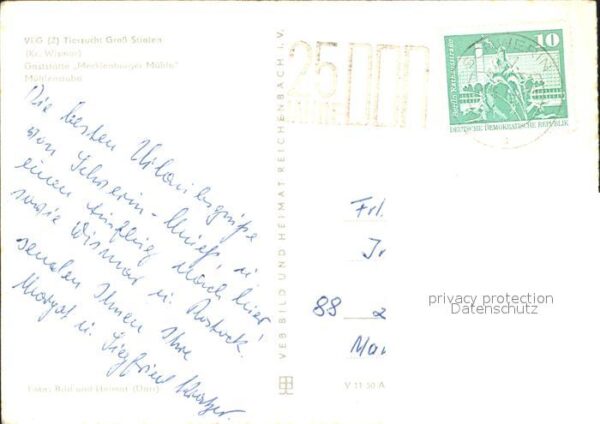 VEG (Z) Tierzucht Groß Stieten
(Kr. Wismar)
Gaststätte „Mecklenburger Mühle“
Mühlenstube
Die besten Urlaubsgrüße
von Schwerin-Mueß u.
einen Ausflug nach hier
sowie Wismar u. Rostock!
senden Ihnen Ihre
Margot u. Siegfried
Foto: Bild und Heimat
VEB BILD UND HEIMAT REICHENBACH I. V.
V 11 50 A
25
JAHRE
DDR
10
Berlin, Rathausstraße
DEUTSCHE DEMOKRATISCHE REPUBLIK
Frl.
88
privacy protection
Datenschutz